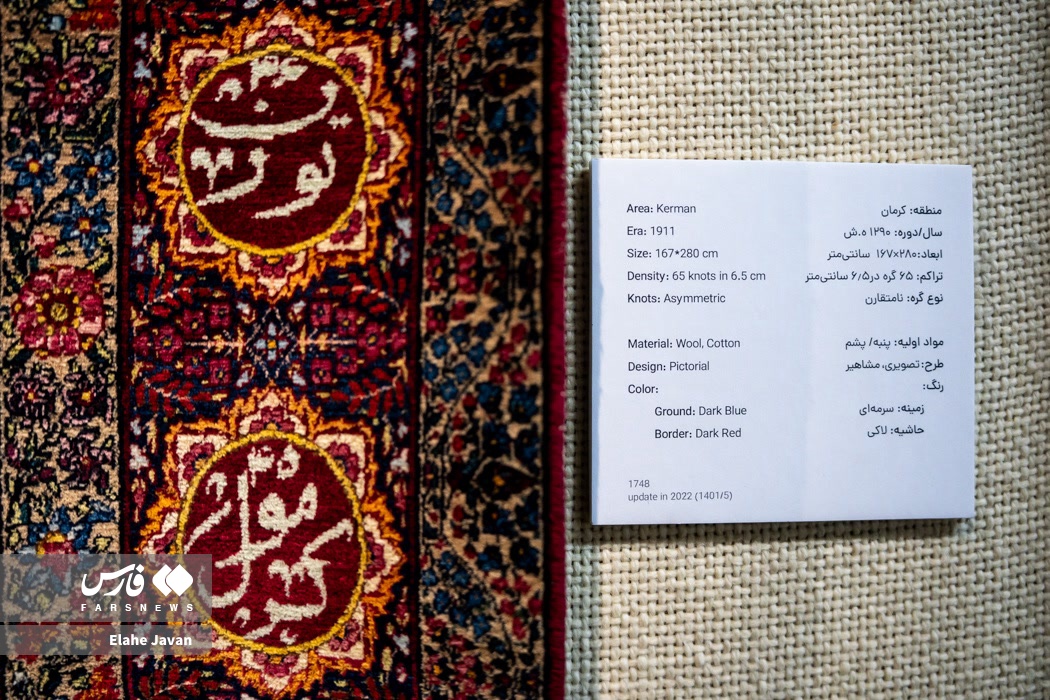 Area: Kerman
Era: 1911
Size: 167*280 cm
Density: 65 knots in 6.5 cm
Knots: Asymmetric
Material: Wool, Cotton
Design: Pictorial
Color:
Ground: Dark Blue
Border: Dark Red
1748
update in 2022 (1401/5)
منطقه: کرمان
سال/دوره: ۱۲۹۰ ه.ش
ابعاد:۲۸۰×۱۶۷ سانتی‌متر
تراکم: ۶۵ گره در۶/۵ سانتی‌متر
نوع گره: نامتقارن
مواد اولیه: پنبه/ پشم
طرح: تصویری، مشاهیر
رنگ:
زمینه: سرمه‌ای
حاشیه: لاکی
فارس
FARSNEWS
Elahe Javan